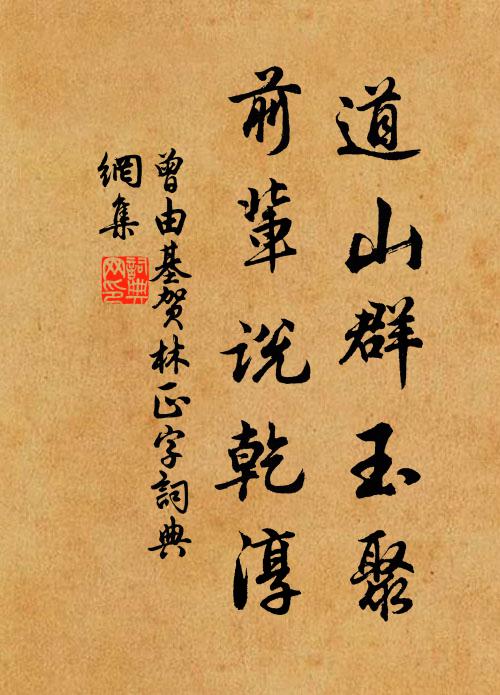 道山群玉聚
前辈説乾淳
曾由基贺林正字詞典
網集
詞典
网印